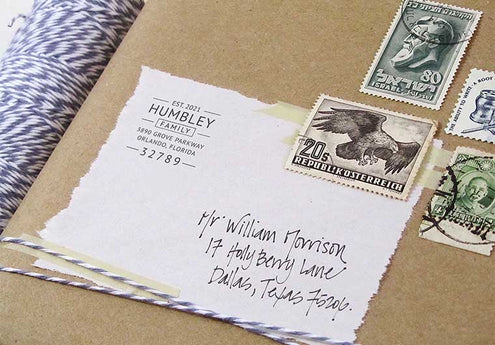 EST. 2021
HUMBLEY
FAMILY
5890 GROVE PARKWAY
ORLANDO, FLORIDA
32789
Mr William Morrison
17 Holly Berry Lane
Dallas, Texas 75206.
80
ISRAEL
ישראל
20s
REPUBLIK ÖSTERREICH